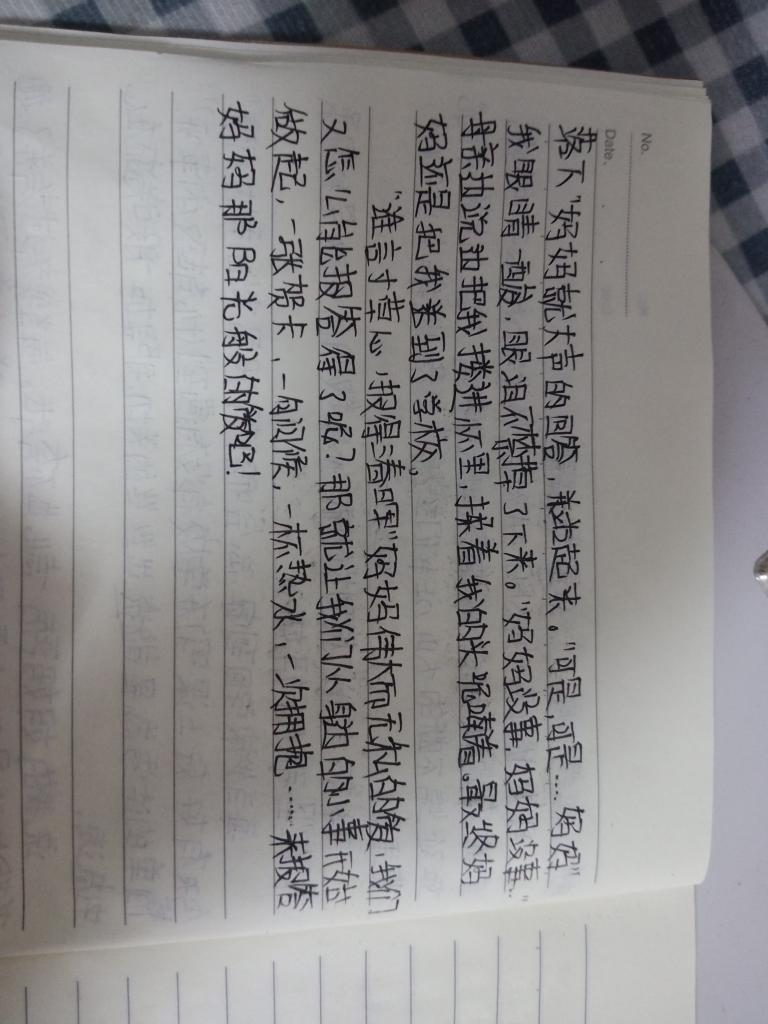 No.
Date.
落下"妈妈就大声的回答,兼站起来。"可是,可是....妈妈"
我眼睛一酸,眼泪不禁掉了下来。"妈妈没事,妈妈没事.."
母亲边说边把我搂进怀里,揉着我的头呢喃着。最终妈
妈还是把我送到了学校,
"谁言寸草心,报得三春晖"妈妈伟大而无私的爱,我们
又怎么能报答得了呢?那就让我们从身边的小事开始
做起,一张贺卡,一句问候,一杯热水,一次拥抱......来报答
妈妈那阳光般的爱吧!